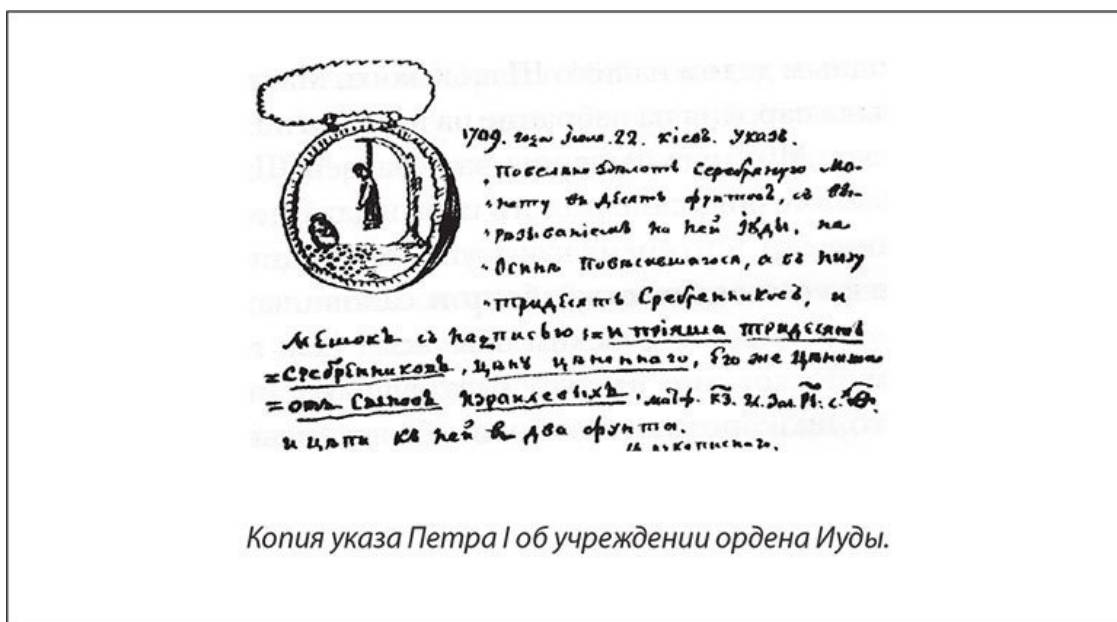 1709. года Iюля. 22. Кiевъ. Указъ.
Повелѣно здѣлать серебряную мо-
нету въ десять фунтовъ, съ вы-
рѣзыванiемъ на ней Iуды, на
Осинѣ повѣсившагося, а въ низу
тридесять Сребренниковъ, и
мѣшокъ съ надписью := и прiяша тридесять
= Сребренниковъ, цѣну цѣненнаго, Его же цѣниша
= отъ Сыновъ Израилевыхъ, матф. к҃з.
и цѣпи къ ней в два фунта.
Копия указа Петра I об учреждении ордена Иуды.